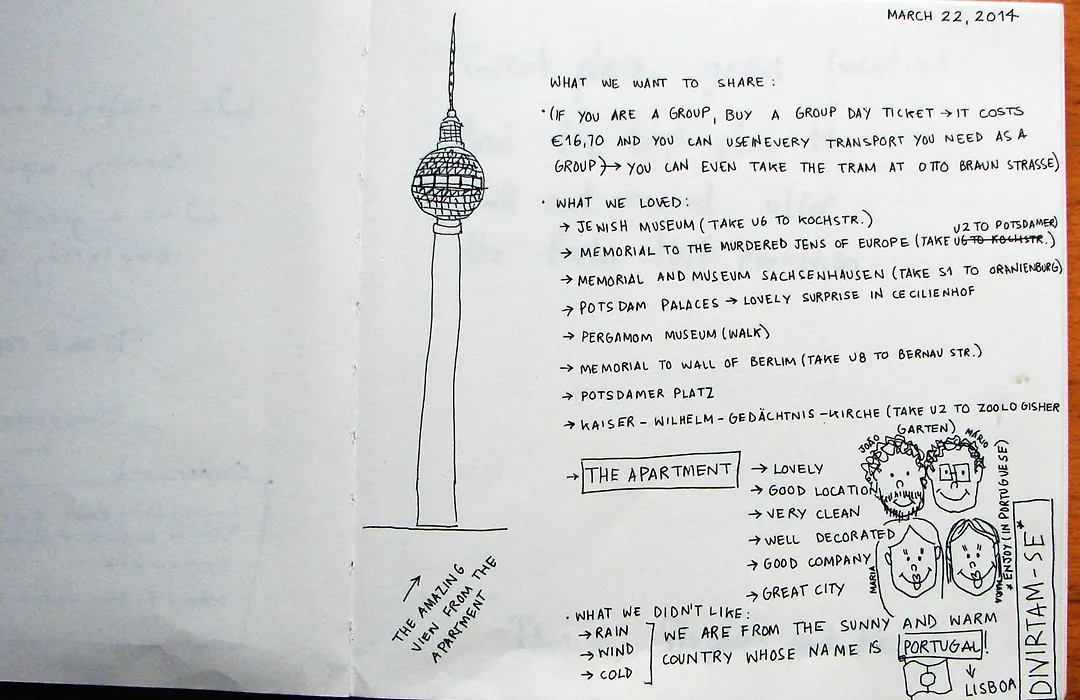 MARCH 22, 2014
WHAT WE WANT TO SHARE:
• (IF YOU ARE A GROUP, BUY A GROUP DAY TICKET → IT COSTS
€16,70 AND YOU CAN USE IN EVERY TRANSPORT YOU NEED AS A
GROUP) → YOU CAN EVEN TAKE THE TRAM AT OTTO BRAUN STRASSE)
• WHAT WE LOVED:
→ JEWISH MUSEUM (TAKE U6 TO KOCHSTR.)
U2 TO POTSDAMER)
→ MEMORIAL TO THE MURDERED JENS OF EUROPE (TAKE U6 TO KOCHSTR.)
→ MEMORIAL AND MUSEUM SACHSENHAUSEN (TAKE S1 TO ORANIENBURG)
→ POTSDAM PALACES → LOVELY SURPRISE IN CECILIENHOF
→ PERGAMOM MUSEUM (WALK)
→ MEMORIAL TO WALL OF BERLIM (TAKE U8 TO BERNAU STR.)
→ POTSDAMER PLATZ
→ KAISER-WILHELM-GEDÄCHTNIS-KIRCHE (TAKE U2 TO ZOOLOGISHER
GARTEN)
→ THE APARTMENT
→ LOVELY
→ GOOD LOCATION
→ VERY CLEAN
→ WELL DECORATED
→ GOOD COMPANY
→ GREAT CITY
JOÃO
MÁRIO
MARIA
* ENJOY (IN PORTUGUESE)
DIVIRTAM-SE*
• WHAT WE DIDN'T LIKE:
→ RAIN
→ WIND
→ COLD
WE ARE FROM THE SUNNY AND WARM
COUNTRY WHOSE NAME IS PORTUGAL!
↓
LISBOA
→
THE AMAZING
VIEW FROM THE
APARTMENT